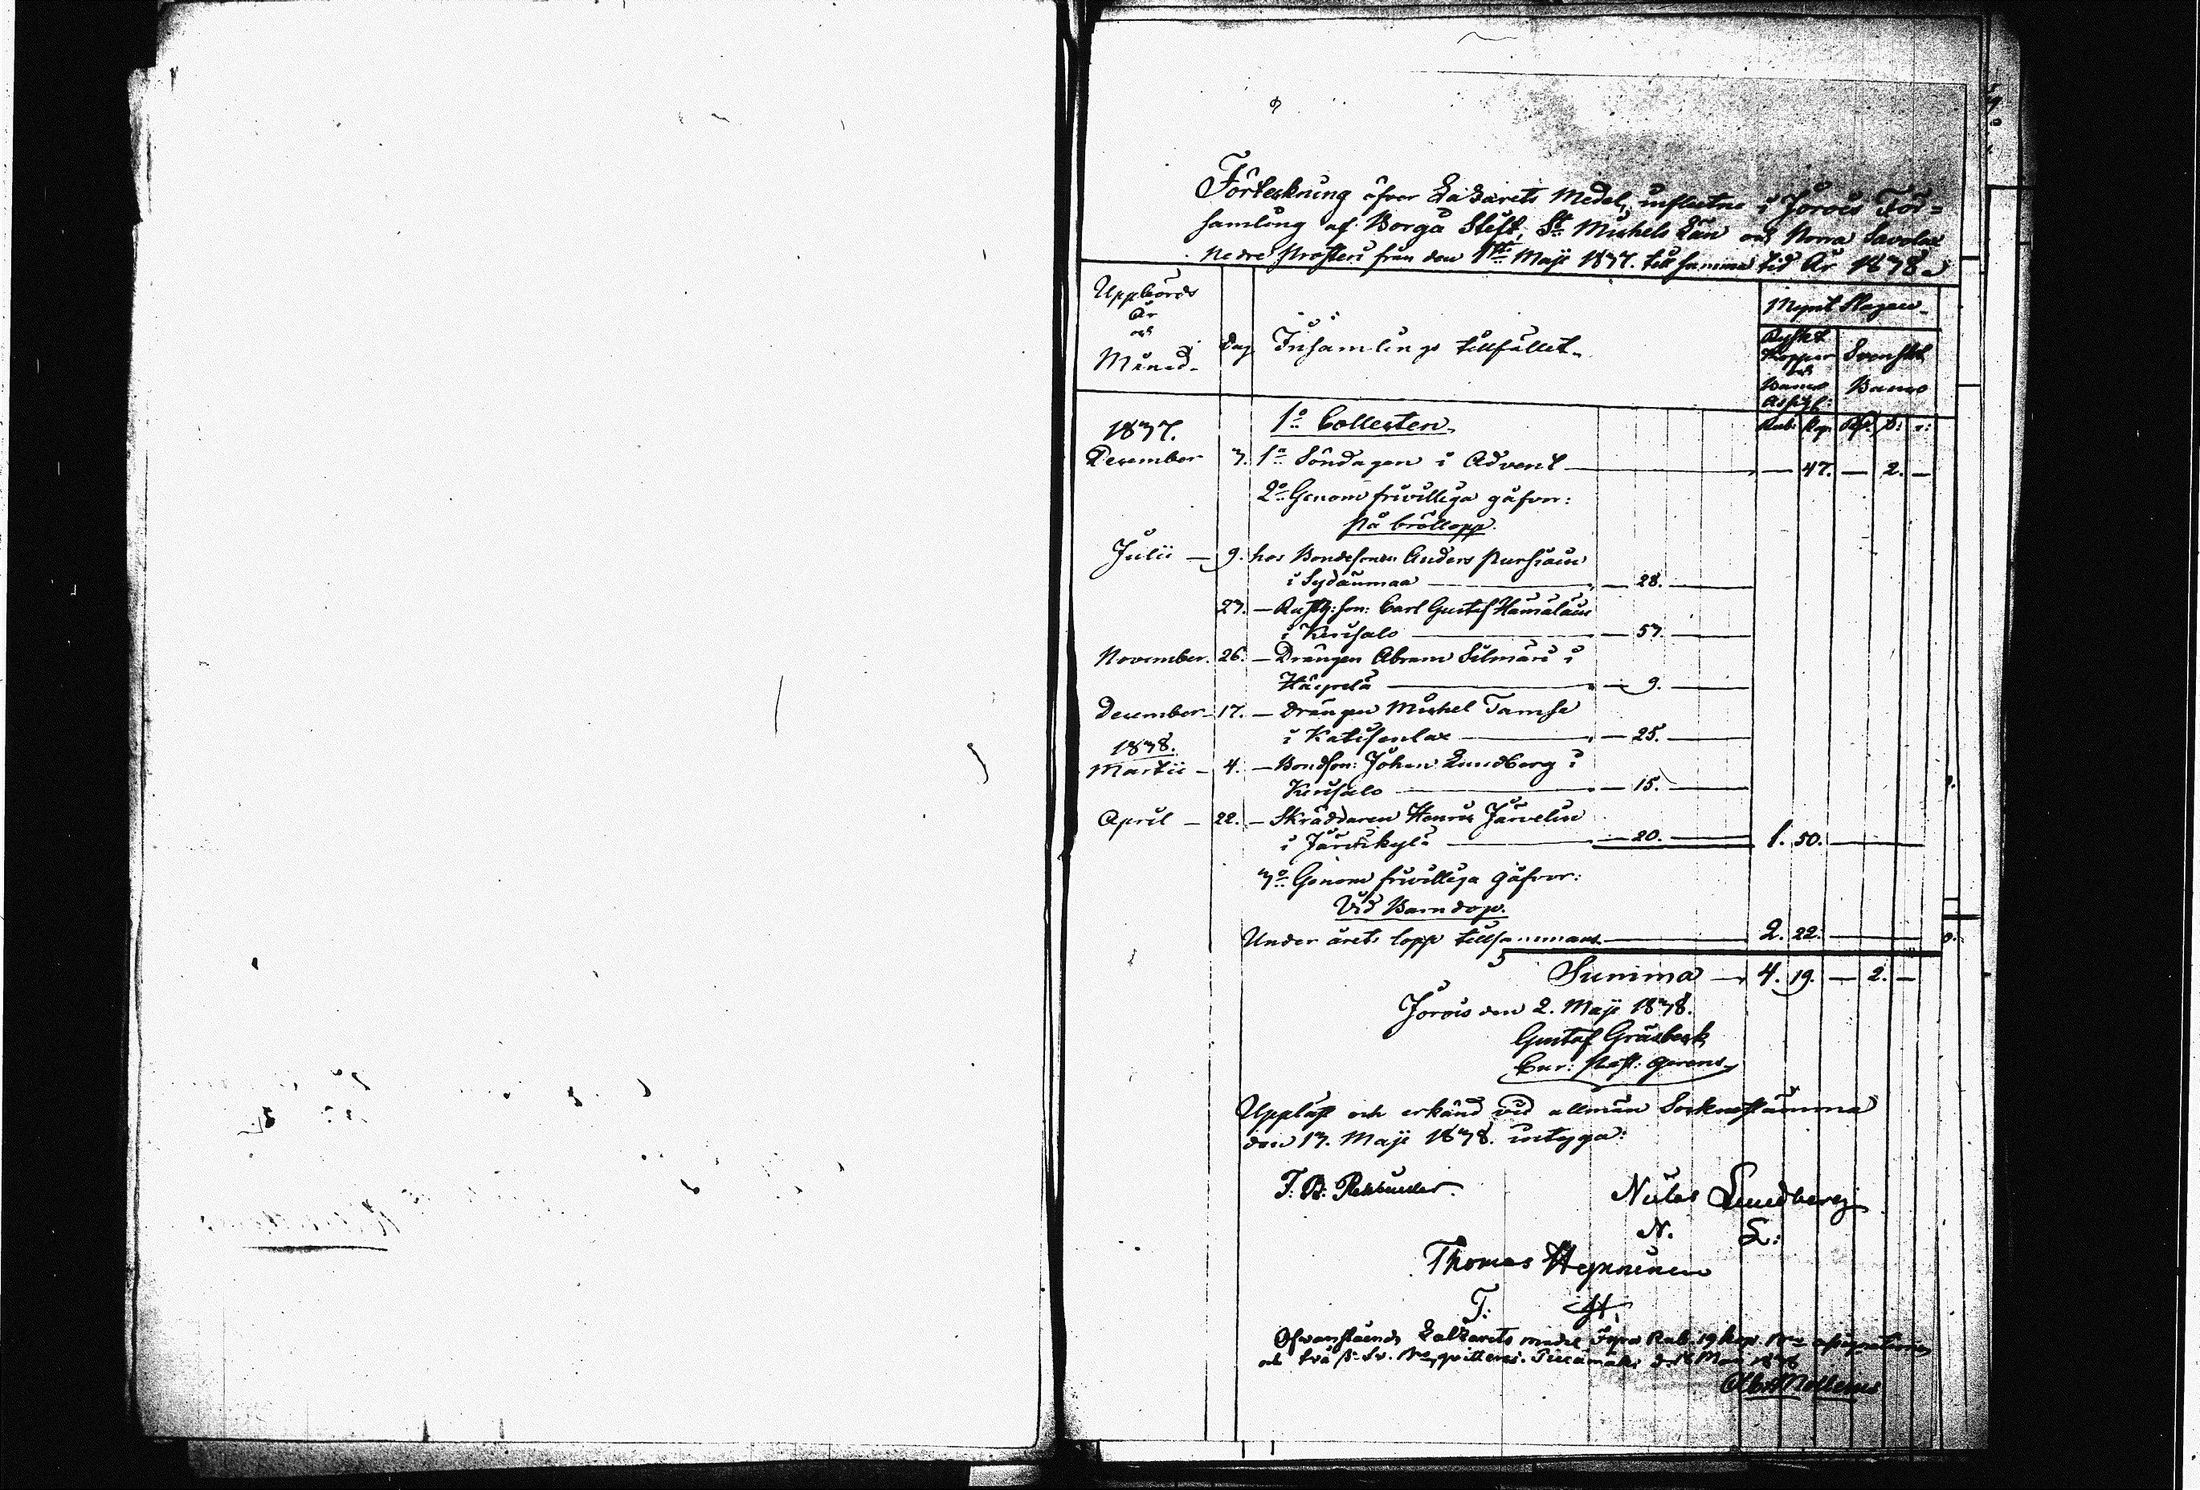 Förteckning öfver Lazarets Medel, influtne i Jorois För=
samling af Borgå Stift, St Michels Län och Norra Savolax
Nedre Prosteri från den 1sta Maji 1837. till samma tid År 1838.
Uppbörds
År
och
Månad.
Dag
Insamlings tillfället.
Mynt Slagen.
Ryskt
Koppar
och
Banco
Assign:
Svenskt
Banco
Rub: Kop. Rd. s: r:
1837.
1o Collecten.
December 3. 1a Söndagen i Advent — 47. — 2. —
2o Genom frivilliga gåfvor:
på bröllopp.
Julii — 9. hos Bondesonen Anders Pursiain
i Sydänmaa — 28. —
23. — Rusth: son: Carl Gustaf Hämäläin
i Kerisalo — 53. —
November. 26. — Drängen Abram Silmäri i
Häyrilä — 9. —
December — 17. — Drängen Michel Tamse
i Katisenlax — 25. —
1838.
Martii — 4. — Bondson: Johan Lundberg i
Kerisalo — 15. —
April — 22. — Skräddaren Henric Järvelin
i Järvikylä — 20. — 1. 50. —
3o Genom frivilliga gåfvor:
Vid Barndop.
Under årets lopp tillsammans — 2. 22. —
Summa — 4. 19. — 2. —
Jorois den 2. Maji 1838.
Gustaf Gråsbeck
Cur: Past: gerens.
Uppläst och erkänd vid allmän Socknestämma
den 13. Maji 1838. intyga:
Niclas Lundberg
N. L:
Thomas Hynninen
T: H.
Ofvanstående Lazaretts medel Fyra Rub. 19 kop. Bco assignationer
och två s. Sv. Bco qvitteras. d. 18 Maji 1838